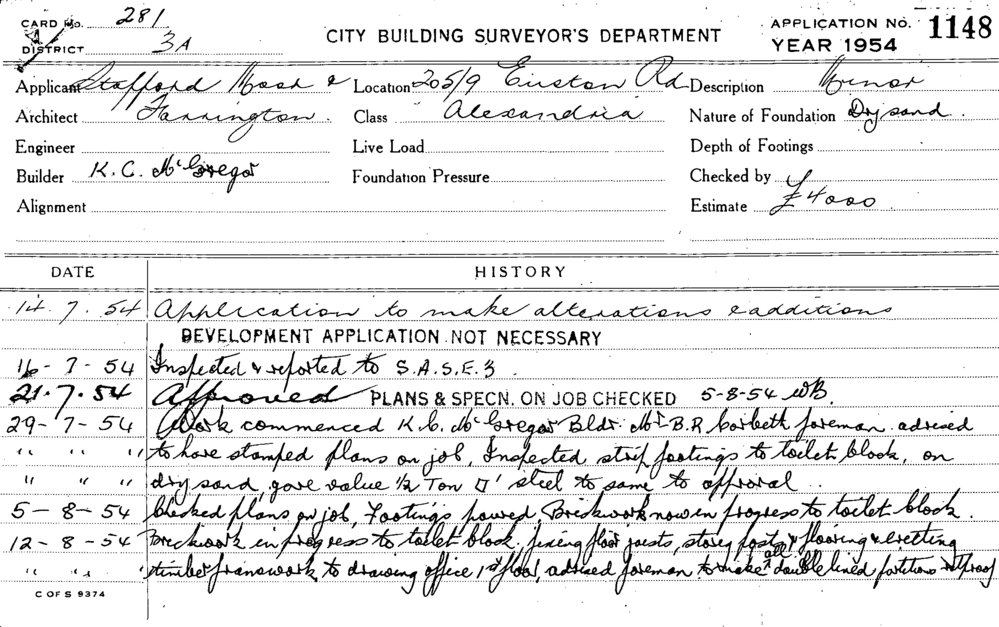 CARD No. 281
DISTRICT 3A
CITY BUILDING SURVEYOR'S DEPARTMENT
APPLICATION No. 1148
YEAR 1954
Applicant Stafford Moor & Location 205/9 Euston Rd Description Minor
Architect Farrington. Class Alexandria Nature of Foundation Dry sand.
Engineer Live Load Depth of Footings
Builder K. C. McGregor Foundation Pressure Checked by
Alignment Estimate £4000
DATE HISTORY
14. 7. 54 Application to make alterations & additions
DEVELOPMENT APPLICATION NOT NECESSARY
16-7-54 Inspected & reported to S.A.S.E.3.
21.7.54 Approved PLANS & SPECN. ON JOB CHECKED 5-8-54 WB.
29-7-54 Work commenced K. C. McGregor Bldr. Mr B.R. Corbett foreman advised
" " " to have stamped plans on job, Inspected strip footings to toilet block, on
" " " dry sand, gave value 1/2 Ton □' steel to same to approval.
5-8-54 Checked plans on job, Footings poured, Brickwork now in progress to toilet block.
12-8-54 Brickwork in progress to toilet block, fixing floor joists, storey posts & flooring & erecting
" " " timber framework to drawing office 1st floor, advised foreman to make all double lined partitions proof
C OF S 9374